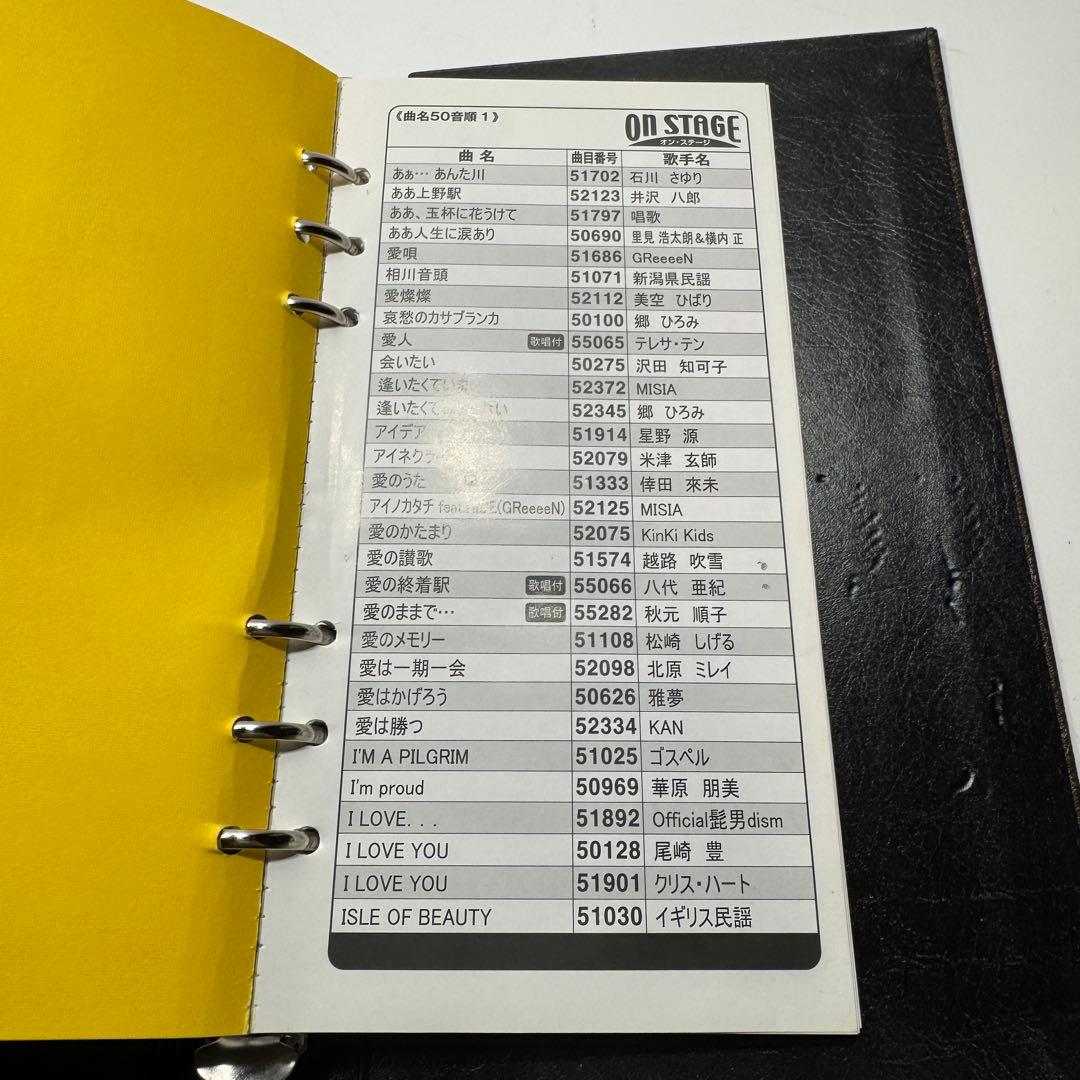 《曲名50音順 1》
ON STAGE
オン・ステージ
曲 名 曲目番号 歌手名
あぁ… あんた川 51702 石川 さゆり
ああ上野駅 52123 井沢 八郎
ああ、玉杯に花うけて 51797 唱歌
ああ人生に涙あり 50690 里見 浩太朗&横内 正
愛唄 51686 GReeeeN
相川音頭 51071 新潟県民謡
愛燦燦 52112 美空 ひばり
哀愁のカサブランカ 50100 郷 ひろみ
愛人 歌唱付 55065 テレサ・テン
会いたい 50275 沢田 知可子
逢いたくていま 52372 MISIA
逢いたくて 52345 郷 ひろみ
アイデア 51914 星野 源
アイネクライ 52079 米津 玄師
愛のうた 51333 倖田 來未
アイノカタチ (GReeeeN) 52125 MISIA
愛のかたまり 52075 KinKi Kids
愛の讃歌 51574 越路 吹雪
愛の終着駅 歌唱付 55066 八代 亜紀
愛のままで… 歌唱付 55282 秋元 順子
愛のメモリー 51108 松崎 しげる
愛は一期一会 52098 北原 ミレイ
愛はかげろう 50626 雅夢
愛は勝つ 52334 KAN
I'M A PILGRIM 51025 ゴスペル
I'm proud 50969 華原 朋美
I LOVE. . . 51892 Official髭男dism
I LOVE YOU 50128 尾崎 豊
I LOVE YOU 51901 クリス・ハート
ISLE OF BEAUTY 51030 イギリス民謡